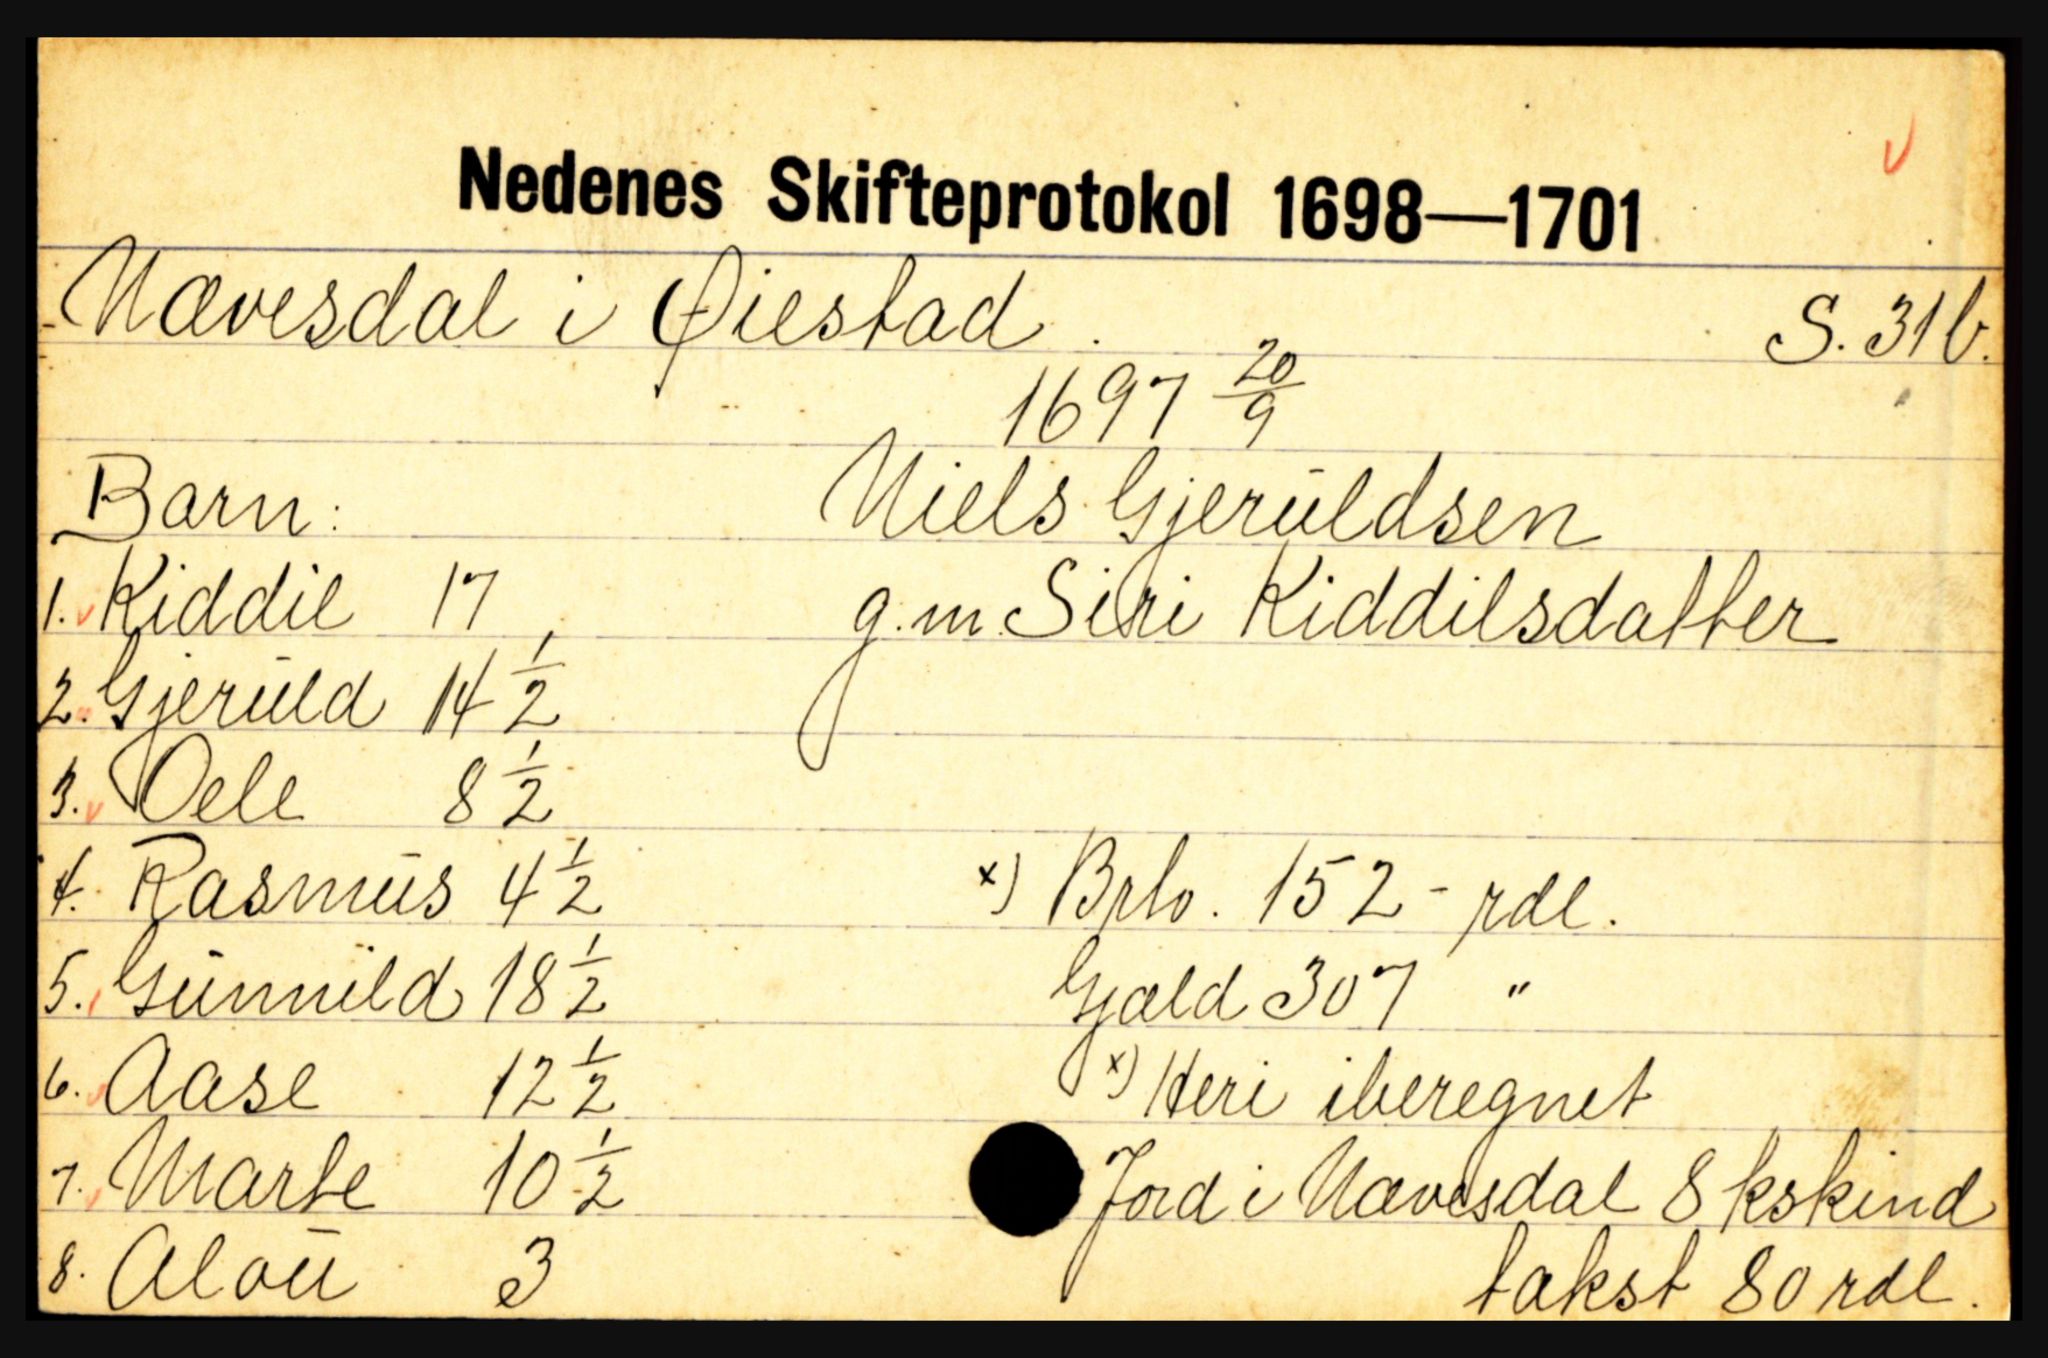 Nedenes Skifteprotokol 1698—1701
Nævesdal i Øiestad. S. 31b.
1697 20/9
Barn: Niels Gjeruldsen
1. Kiddil 17 g.m. Siri Kiddilsdatter
2. Gjeruld 14 1/2
3. Oele 8 1/2
4. Rasmus 4 1/2 x) Brto. 152 - rdl.
5. Gunnild 18 1/2 Gjæld 307 "
6. Aase 12 1/2 x) Heri iberegnet
7. Marte 10 1/2 Jord i Nævesdal 8 kskind
8. Alou 3 takst 80 rdl.